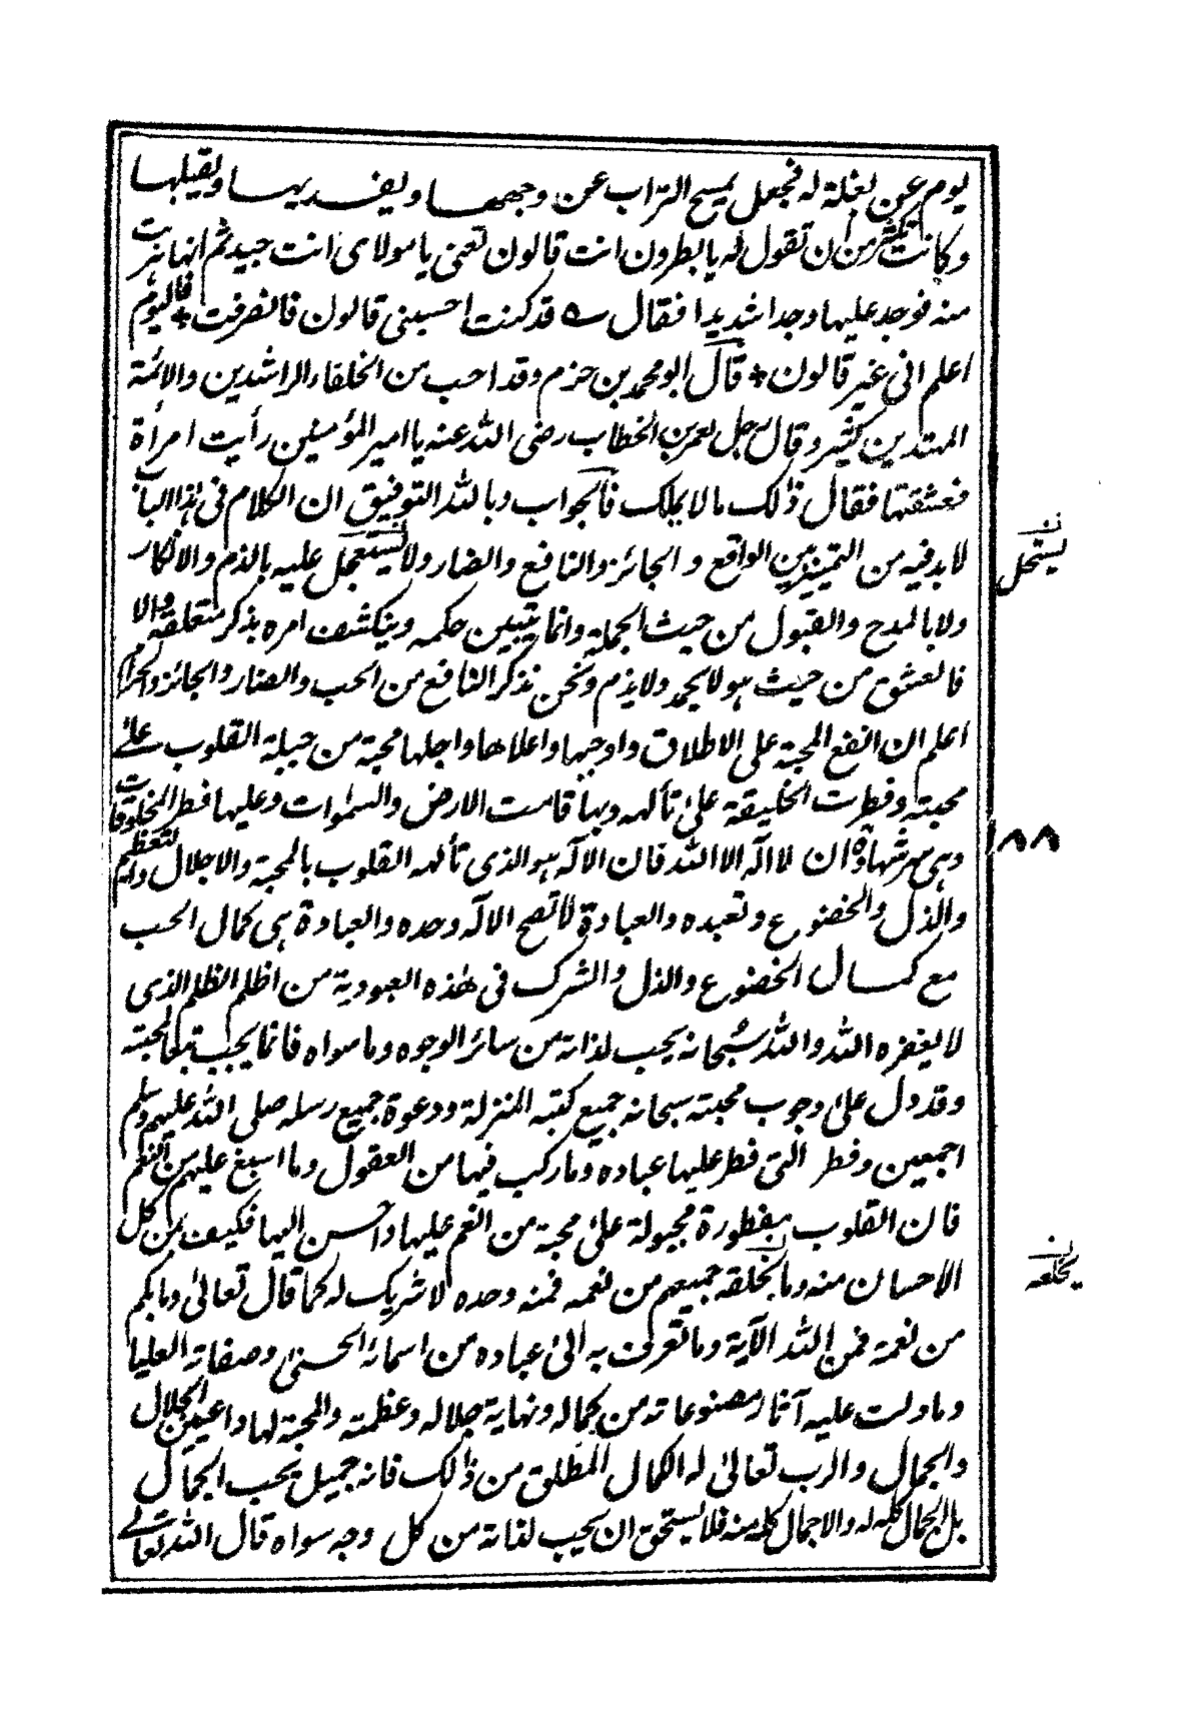 يوم عن بغلة له فجعل يمسح التراب عن وجهها ويفديها ويقبلها
وكانت تكثر من ان تقول له يا بطرون انت قالون تعني يا مولاي انت جيد ثم انها هربت
منه فوجد عليها وجدا شديدا فقال ــه قد كنت احسبني قالون فانصرفت + فاليوم
اعلم اني غير قالون + قال ابو محمد بن حزم وقد احب من الخلفاء الراشدين والائمة
المهتدين كثير وقال رجل لعمر بن الخطاب رضي الله عنه يا امير المؤمنين رأيت امرأة
فعشقتها فقال ذلك ما لا يملك فالجواب وبالله التوفيق ان الكلام في هذا الباب
لا بد فيه من التميز بين الواقع والجائز والنافع والضار ولا يستعجل عليه بالذم والانكار
ولا بالمدح والقبول من حيث الجملة وانما يتبين حكمه وينكشف امره بذكر متعلقه والا
فالعشق من حيث هو لا يحمد ولا يذم ونحن نذكر النافع من الحب والضار والجائز والحرام
اعلم ان انفع المحبة على الاطلاق واوجبها واعلاها واجلها محبة من جبلة القلوب على
محبته وفطرت الخليقة على تألهه وبها قامت الارض والسموات وعليها فطر المخلوقات
وهي سر شهادة ان لا اله الا الله فان الاله هو الذي تألهه القلوب بالمحبة والاجلال والتعظيم
والذل والخضوع وتعبده والعبادة لا تصح الا له وحده والعبادة هي كمال الحب
مع كمال الخضوع والذل والشرك في هذه العبودية من اظلم الظلم الذي
لا يغفره الله والله سبحانه يحب لذاته من سائر الوجوه وما سواه فانما يحب تبعا لمحبته
وقد دل على وجوب محبته سبحانه جميع كتبه المنزلة ودعوة جميع رسله صلى الله عليهم وسلم
اجمعين وفطر التي فطر عليها عباده وما ركب فيها من العقول وما اسبغ عليهم من النعم
فان القلوب مفطورة مجبولة على محبة من انعم عليها واحسن اليها فكيف بمن كل
الاحسان منه وما بخلقه جميعهم من نعمه فمنه وحده لا شريك له كما قال تعالى وما بكم
من نعمة فمن الله الآية وما تعرف به الى عباده من اسمائه الحسنى وصفاته العليا
وما دلت عليه آثار مصنوعاته من كماله ونهاية جلاله وعظمته والمحبة لها داعيين الجلال
والجمال والرب تعالى له الكمال المطلق من ذلك فانه جميل يحب الجمال
بل الجمال كله له والاجمال كله منه فلا يستحق ان يحب لذاته من كل وجه سواه قال الله تعالى
ن
يستحل
١٨٨
ن
بخلقه